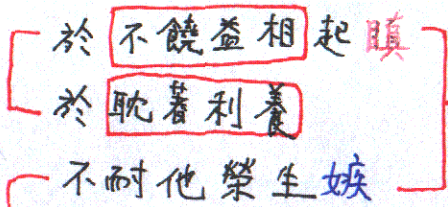 於不饒益相起瞋
於耽著利養
不耐他榮生嫉